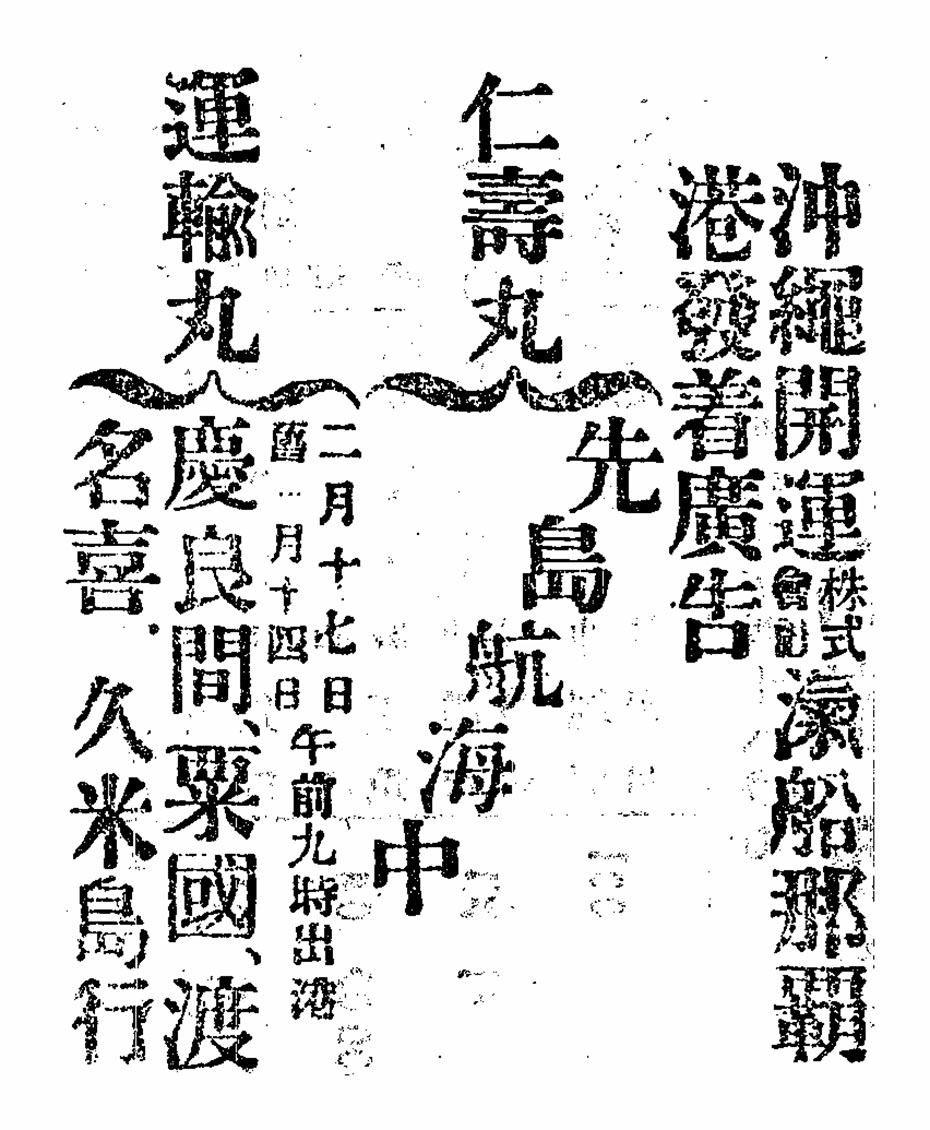 沖繩開運株式會社滊船那覇
港發着廣告
仁壽丸
先島航海中
運輸丸
二月十七日
舊 月十四日
午前九時出港
慶良間、粟國、渡
名喜、久米島行